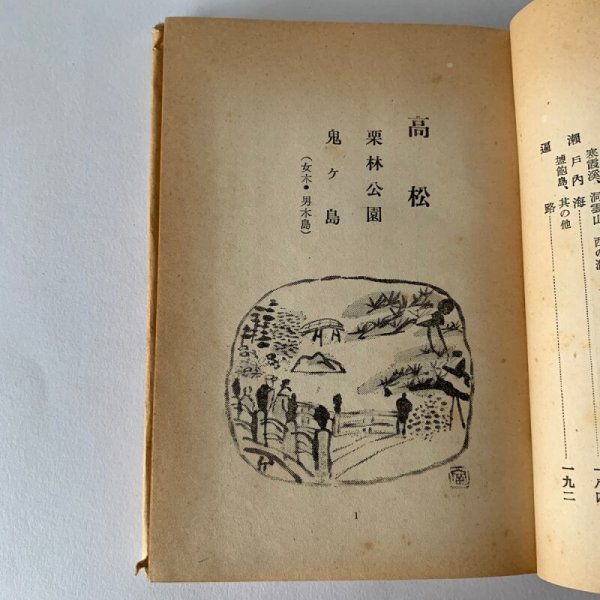 高松
栗林公園
鬼ヶ島
(女木・男木島)
1
寒霞溪、洞雲山、西の瀧
瀬戸内海
𢭐飽島、其の他
遍路
一九二